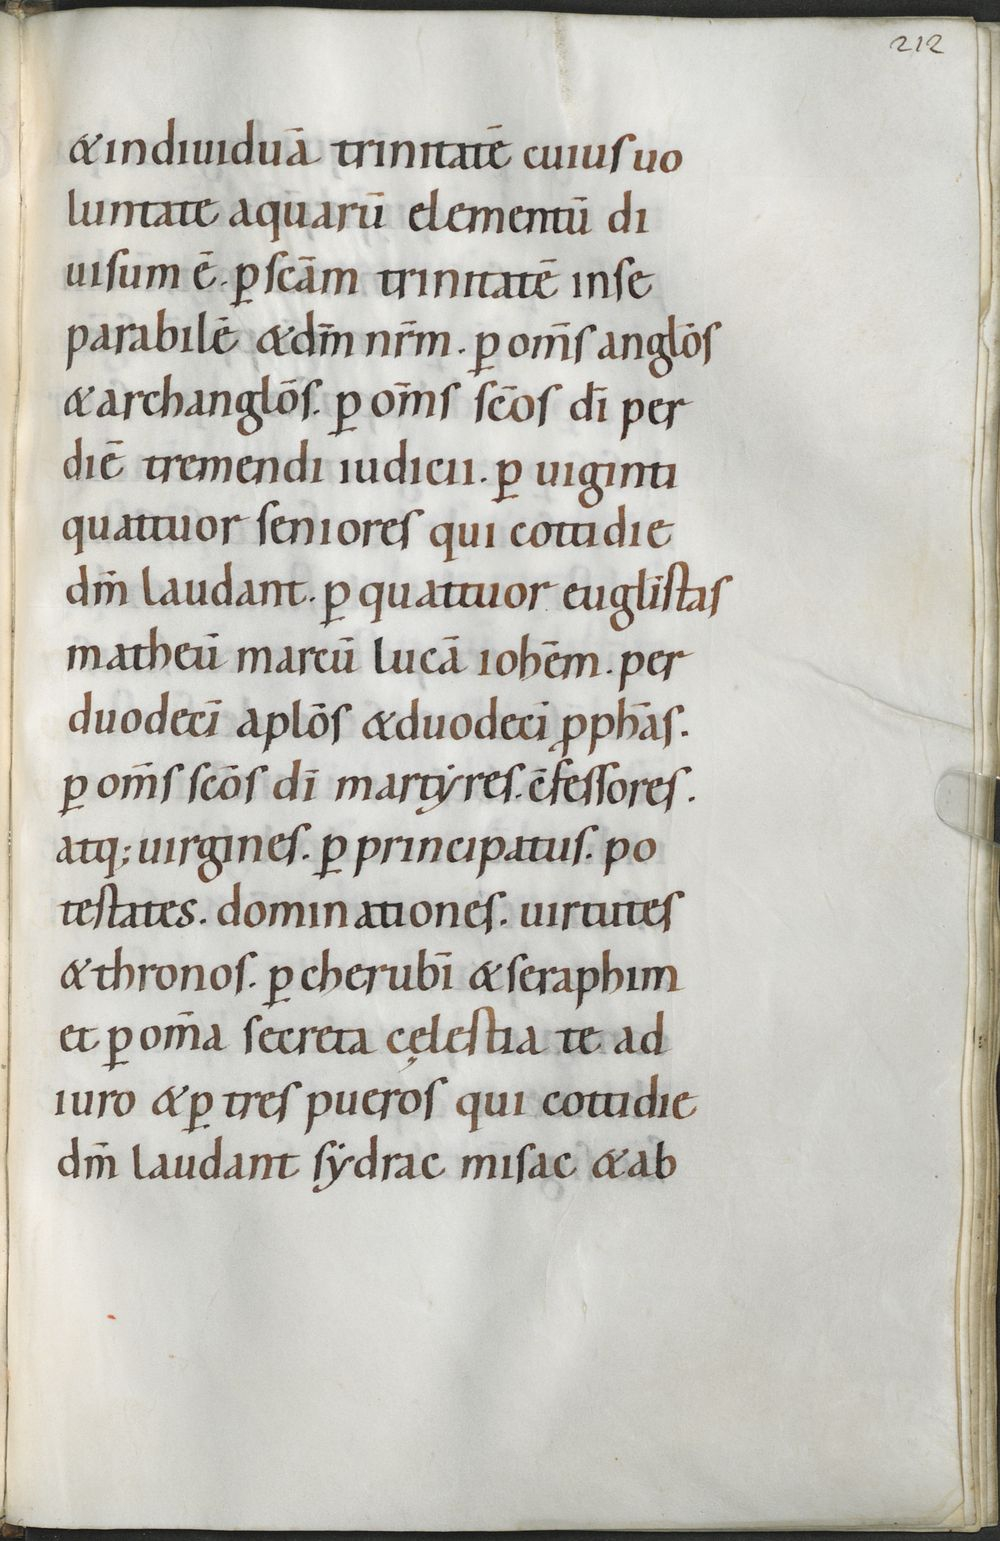 212
& indiuiduā trinitatē cuius uo
luntate aquarū elementū di
uisum ē. ꝑ scām trinitatē inse
parabilē & dm̄ nrm̄. ꝑ om̄s anglōs
& archanglōs. ꝑ om̄s scōs dī per
diē tremendi iudicii. ꝑ uiginti
quattuor seniores qui cottidie
dm̄ laudant. ꝑ quattuor euglīstas
matheū marcū lucā iohēm. per
duodecī aplōs & duodecī ꝓphās.
ꝑ om̄s scōs dī martẏres. c̄fessores.
atq; uirgines. ꝑ principatus. po
testates. dominationes. uirtutes
& thronos. ꝑ cherubī & seraphim
et ꝑ om̄a secreta cęlestia te ad
iuro & ꝑ tres pueros qui cottidie
dm̄ laudant sẏdrac misac & ab